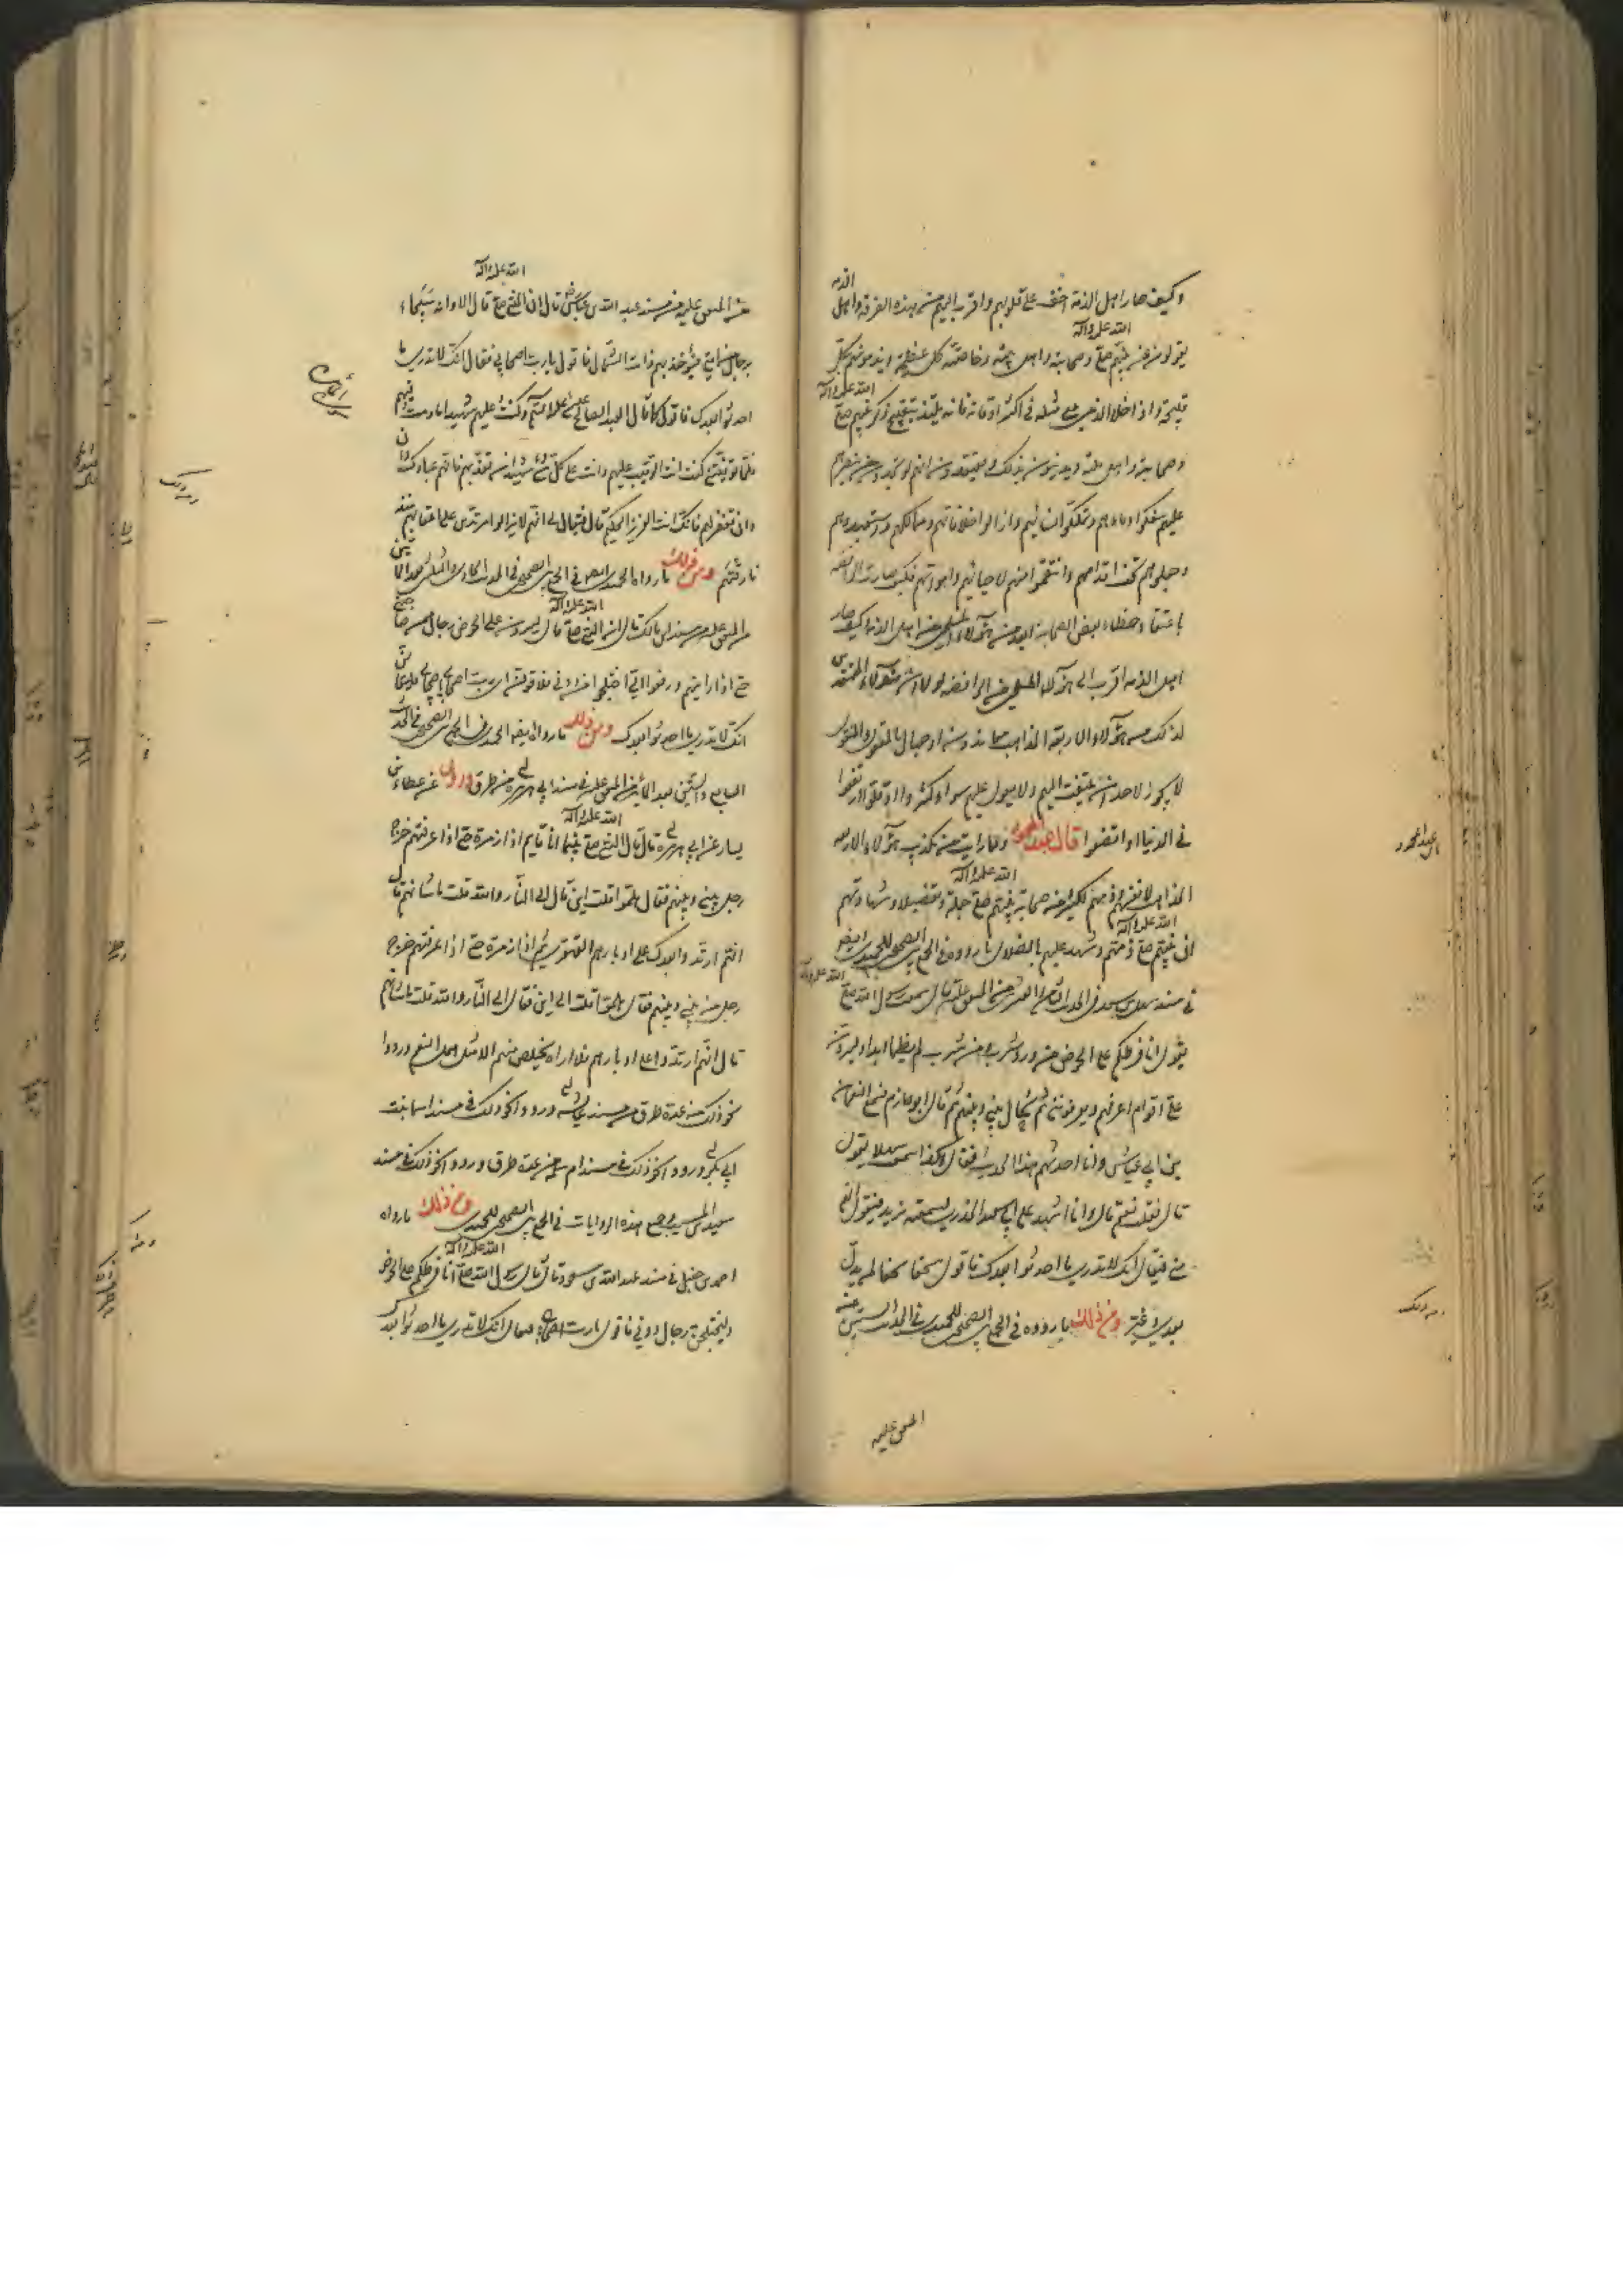 وكيف صار اهل الذمة اخف على قلوبهم واقرب اليهم من هذه الفرقة واهل الذمة
يقولون عن نبيهم صلى الله عليه وآله وصحابته واهل بيته وخاصته كل عظيمة ويذمونهم بكل
قبيحة واذا خلا الذمي مع مثله في اكثر اوقاته فانه يتلذذ بتقبيح ذكر نبيهم صلى الله عليه وآله
وصحابته واهل ملته ويدينون بذلك ويعتقدون انهم لو
عليهم سفكوا دماءهم وتملكوا نسائهم وازالوا خلافتهم وممالكهم واستعبدوهم
وجعلوهم تحت اقدامهم وانتقموا منهم لاحيائهم وامواتهم فكيف صارت الرافضة
باعتقاد خطاء بعض الصحابة ابعد من هؤلاء المسلمين من اهل الذمة وكيف صار
اهل الذمة اقرب الى هؤلاء المسلمين من الرافضة لولا
لا يجوز لاحد ان يلتفت اليهم ولا يعول عليهم سواء كثروا او قلوا ارتفعوا
في الدنيا او اتضعوا قال عبد المحمود ومما رايت من تكذيب هؤلاء الاربعة
المذاهب لانفسهم وذمهم لكثير من صحابة نبيهم صلى الله عليه وآله جملة وتفصيلا وشهادتهم
ان نبيهم صلى الله عليه وآله ذمهم وشهد عليهم بالضلال ما رووه في الجمع بين الصحيحين للحميدي ايضا
في مسند سهل بن سعد في الحديث الثامن والعشرين من المتفق عليه قال سمعت رسول الله صلى الله عليه وآله
يقول انا فرطكم على الحوض من ورد شرب ومن شرب لم يظمأ ابدا وليردن
علي اقوام اعرفهم ويعرفونني ثم يحال بيني وبينهم ثم قال ابو حازم فسمع النعمان
بن ابي عياش وانا احدثهم هذا الحديث فقال هكذا سمعت سهلا يقول
قال فقلت نعم قال وانا اشهد على ابي سعيد الخدري لسمعته يزيد فيقول انهم
مني فيقال انك لا تدري ما احدثوا بعدك فاقول سحقا سحقا لمن بدل
بعدي وغير ومن ذلك ما رووه في الجمع بين الصحيحين للحميدي في الحديث الستين
المتفق عليه
من المتفق عليه من مسند عبد الله بن عباس قال ان النبي صلى الله عليه وآله قال الا وانه سيجاء
برجال من امتي فيؤخذ بهم ذات الشمال فاقول يا رب اصحابي فيقال انك لا تدري ما
احدثوا بعدك فاقول كما قال العبد الصالح عيسى عليه السلام وكنت عليهم شهيدا ما دمت فيهم
فلما توفيتني كنت انت الرقيب عليهم وانت على كل شيء شهيد ان تعذبهم فانهم عبادك
وان تغفر لهم فانك انت العزيز الحكيم قال فيقال لي انهم لا يزالوا مرتدين على اعقابهم منذ
فارقتهم ومن ذلك ما رواه الحميدي ايضا في الجمع بين الصحيحين في الحديث الحادي والثلاثين بعد المائة
من المتفق عليه من مسند انس بن مالك قال ان النبي صلى الله عليه وآله قال ليردن على الحوض رجال ممن صاحبني
حتى اذا رايتهم ورفعوا الي اختلجوا دوني فلاقولن اي رب اصحابي اصحابي فليقالن
انك لا تدري ما احدثوا بعدك ومن ذلك ما رواه ايضا الحميدي في الجمع بين الصحيحين في الحديث
السابع والستين بعد المائتين من المتفق عليه في مسند ابي هريرة من طرق عن عطاء بن
يسار عن ابي هريرة قال قال النبي صلى الله عليه وآله بينما انا قايم اذا زمرة حتى اذا عرفتهم خرج
رجل بيني وبينهم فقال هلموا قلت اين قال الى النار والله قلت ما شانهم قال
انهم ارتدوا بعدك على ادبارهم القهقرى ثم اذا زمرة حتى اذا عرفتهم خرج
رجل من بيني وبينهم فقال هلموا قلت الى اين فقال الى النار والله قلت ما شانهم
قال انهم ارتدوا على ادبارهم فلا اراه يخلص منهم الا مثل همل النعم ورووا
نحو ذلك من عدة طرق من مسند عايشة ورووا نحو ذلك في مسند اسماء بنت
ابي بكر ورووا نحو ذلك في مسند ام سلمة من عدة طرق ورووا نحو ذلك في مسند
سعيد بن المسيب وجميع هذه الروايات في الجمع بين الصحيحين للحميدي ومن ذلك ما رواه
احمد بن حنبل في مسند عبد الله بن مسعود قال قال رسول الله صلى الله عليه وآله انا فرطكم على الحوض
وليختلجن رجال دوني فاقول يا رب اصحابي فيقال انك لا تدري ما احدثوا بعدك